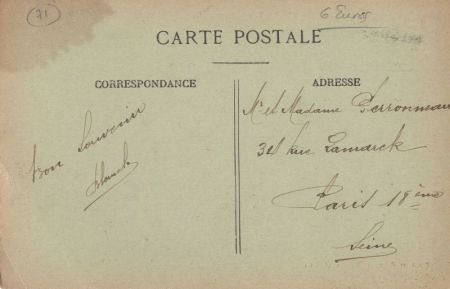 71
6 Euros
CARTE POSTALE
CORRESPONDANCE
ADRESSE
Bon Souvenir
Blanche
Mr et Madame Perronneau
34 rue Lamarck
Paris 18ème
Seine